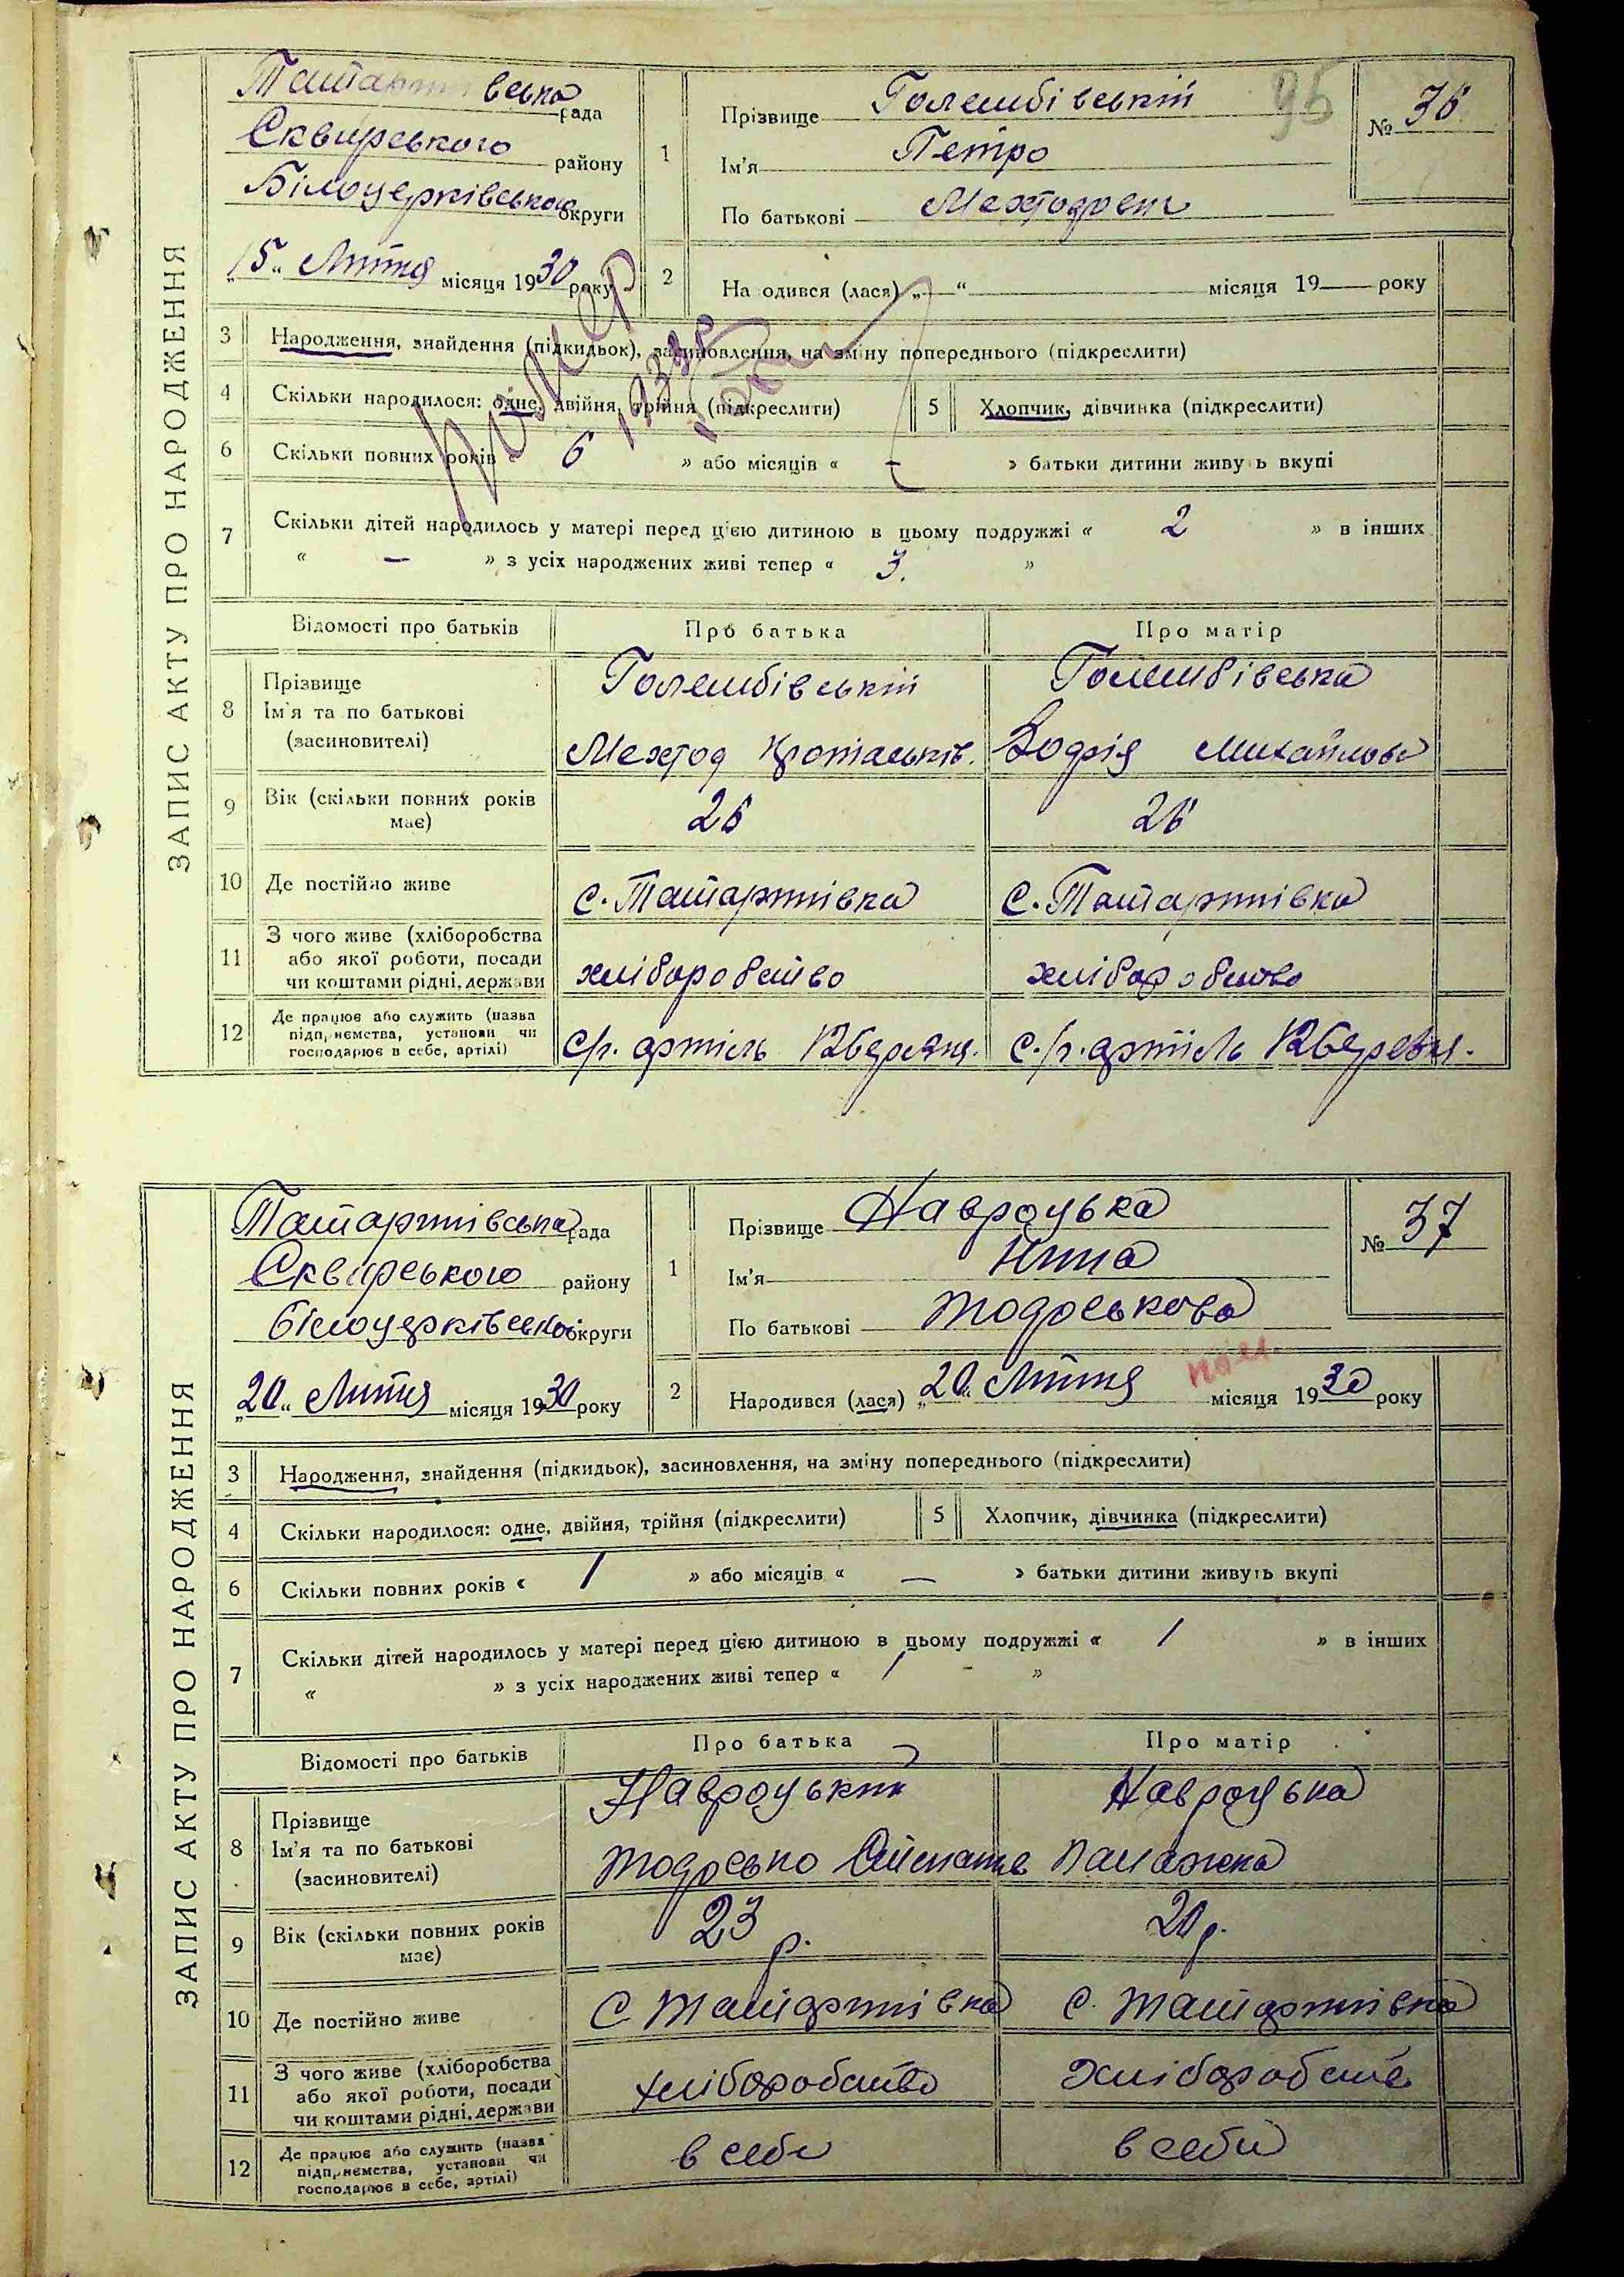 ЗАПИС АКТУ ПРО НАРОДЖЕННЯ
95
№ 36
рада
Сквирського району
Білоцерківської округи
„15“ Лютня місяця 1930 року
1
Прізвище Голембівській
Ім'я Петро
По батькові
2 На одився (лася) „—“ — місяця 19— року
Помер 1933 р
3 Народження, знайдення (підкидьок), засиновлення, на зміну попереднього (підкреслити)
4 Скільки народилося: одне, двійня, трійня (підкреслити) 5 Хлопчик, дівчинка (підкреслити)
6 Скільки повних років « 6 » або місяців « – » батьки дитини живуть вкупі
7 Скільки дітей народилось у матері перед цією дитиною в цьому подружжі « 2 » в інших
« – » з усіх народжених живі тепер « 3. »
Відомості про батьків Про батька Про матір
8 Прізвище Голембівській Голембівська
Ім'я та по батькові
(засиновителі) Зофія Михайлова
9 Вік (скільки повних років має) 26 26
10 Де постійно живе с. Татаринівка с. Татаринівка
11 З чого живе (хліборобства
або якої роботи, посади
чи коштами рідні, держави хліборобство хліборобство
12 Де працює або служить (назва
підприємства, установи чи
господарює в себе, артілі) с/г. артіль 12 березня. с./г. артіль 12 березня.
ЗАПИС АКТУ ПРО НАРОДЖЕННЯ
№ 37
Татаринівська рада
Сквирського району
Білоцерківської округи
„20“ Лютня місяця 1930 року
1
Прізвище Навроцька
Ім'я Нина
По батькові Тодоськова
2 Народився (лася) „20“ Лютня місяця 1930 року
3 Народження, знайдення (підкидьок), засиновлення, на зміну попереднього (підкреслити)
4 Скільки народилося: одне, двійня, трійня (підкреслити) 5 Хлопчик, дівчинка (підкреслити)
6 Скільки повних років « 1 » або місяців « — » батьки дитини живуть вкупі
7 Скільки дітей народилось у матері перед цією дитиною в цьому подружжі « 1 » в інших
« » з усіх народжених живі тепер « 1 »
Відомості про батьків Про батька Про матір
8 Прізвище Навроцький Навроцька
Ім'я та по батькові Тодосько
(засиновителі)
9 Вік (скільки повних років має) 23 р. 20 р.
10 Де постійно живе С Татаринівка С. Татаринівка
11 З чого живе (хліборобства
або якої роботи, посади
чи коштами рідні, держави хліборобство
12 Де працює або служить (назва
підприємства, установи чи
господарює в себе, артілі) в себе в себи